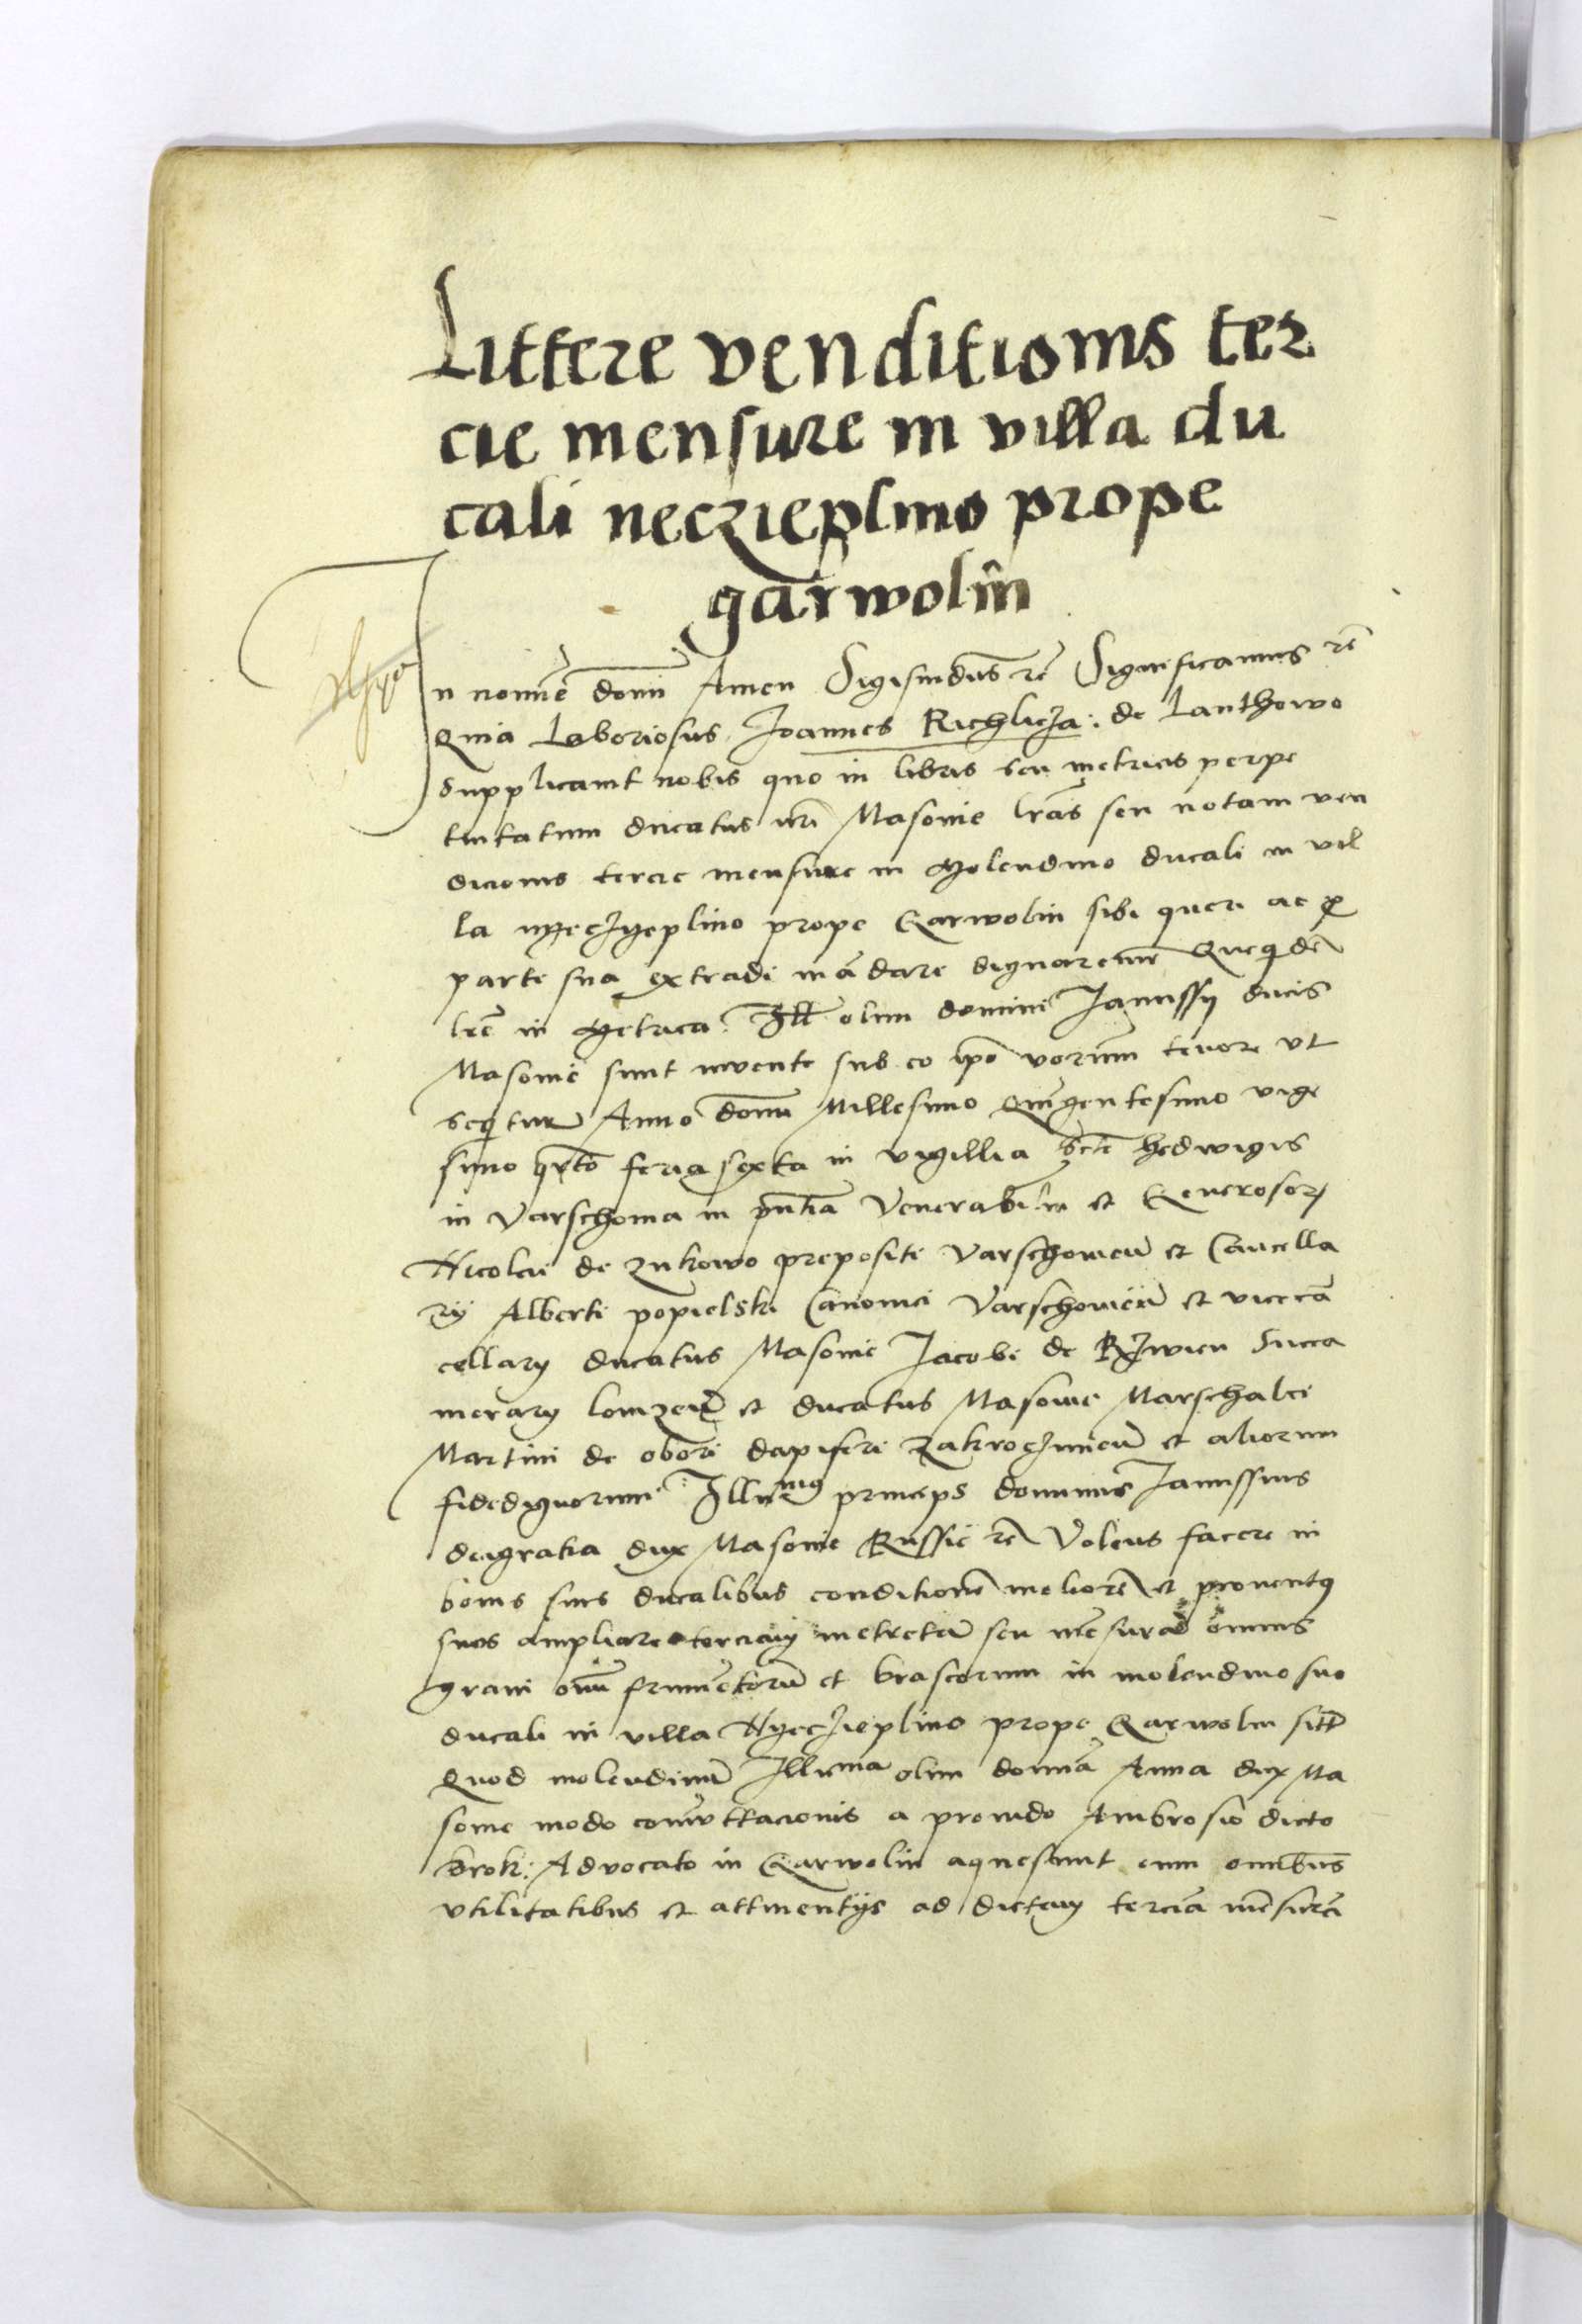 Littere venditionis ter
cie mensure in villa du
cali neczieplino prope
garwolin
In nomīe domī Amen Sigismdūs rē Significamus rē
Quia Laboriosus Joannes Richlicza: de Lanthowo
Supplicavit nobis quo in libris seu metricis perpe
tuitatum ducatus nrī Masovie lrās seu notam ven
dicionis tercie mensure in Molendino ducali in vil
la nyeczyeplino prope Garwolin sibi queri ac
parte sua extradi mādare dignaremr Queqdē
lrē in Metrica Ill olim domini Janussy ducis
Masovie sunt invente sub eo ipō verūm tenore ut
seqtur Anno domī Millesimo Quīgentesimo vige
simo qrto feria sexta in vigillia scte hedwigis
in Varschovia in pntia Venerabilm et Generosorz
Nicolai de zukowo prepositi Varschovieñ et Cancella
rij Alberti popielski Canonici Varschovieñ et vicecā
cellary ducatus Masovie Jacobi de Rzwien Succa
merary lomzeñ et ducatus Masovie Marschalci
Martini de obori dapiferi zakroczimieñ et aliorum
fidedignorum Illmus princeps dominus Janussius
deigratia dux Masovie Russie rē Volens facere in
bonis suis ducalibus conditionē meliorē et proventus
suos ampliare terciam metretā seu mēsurā omnis
grani oīm frumētorū et brascorum in molendino suo
ducali in villa Nyeczieplino prope Garwolin sitt
Quod molendinū Illmā olim domīa Anna dux Ma
sovie modo comuttacionis a provido Ambrosio dicto
krok: Advocato in Garwolin aquesivit cum omībus
utilitatibus et attinentijs ad dictam terciā mēsurā